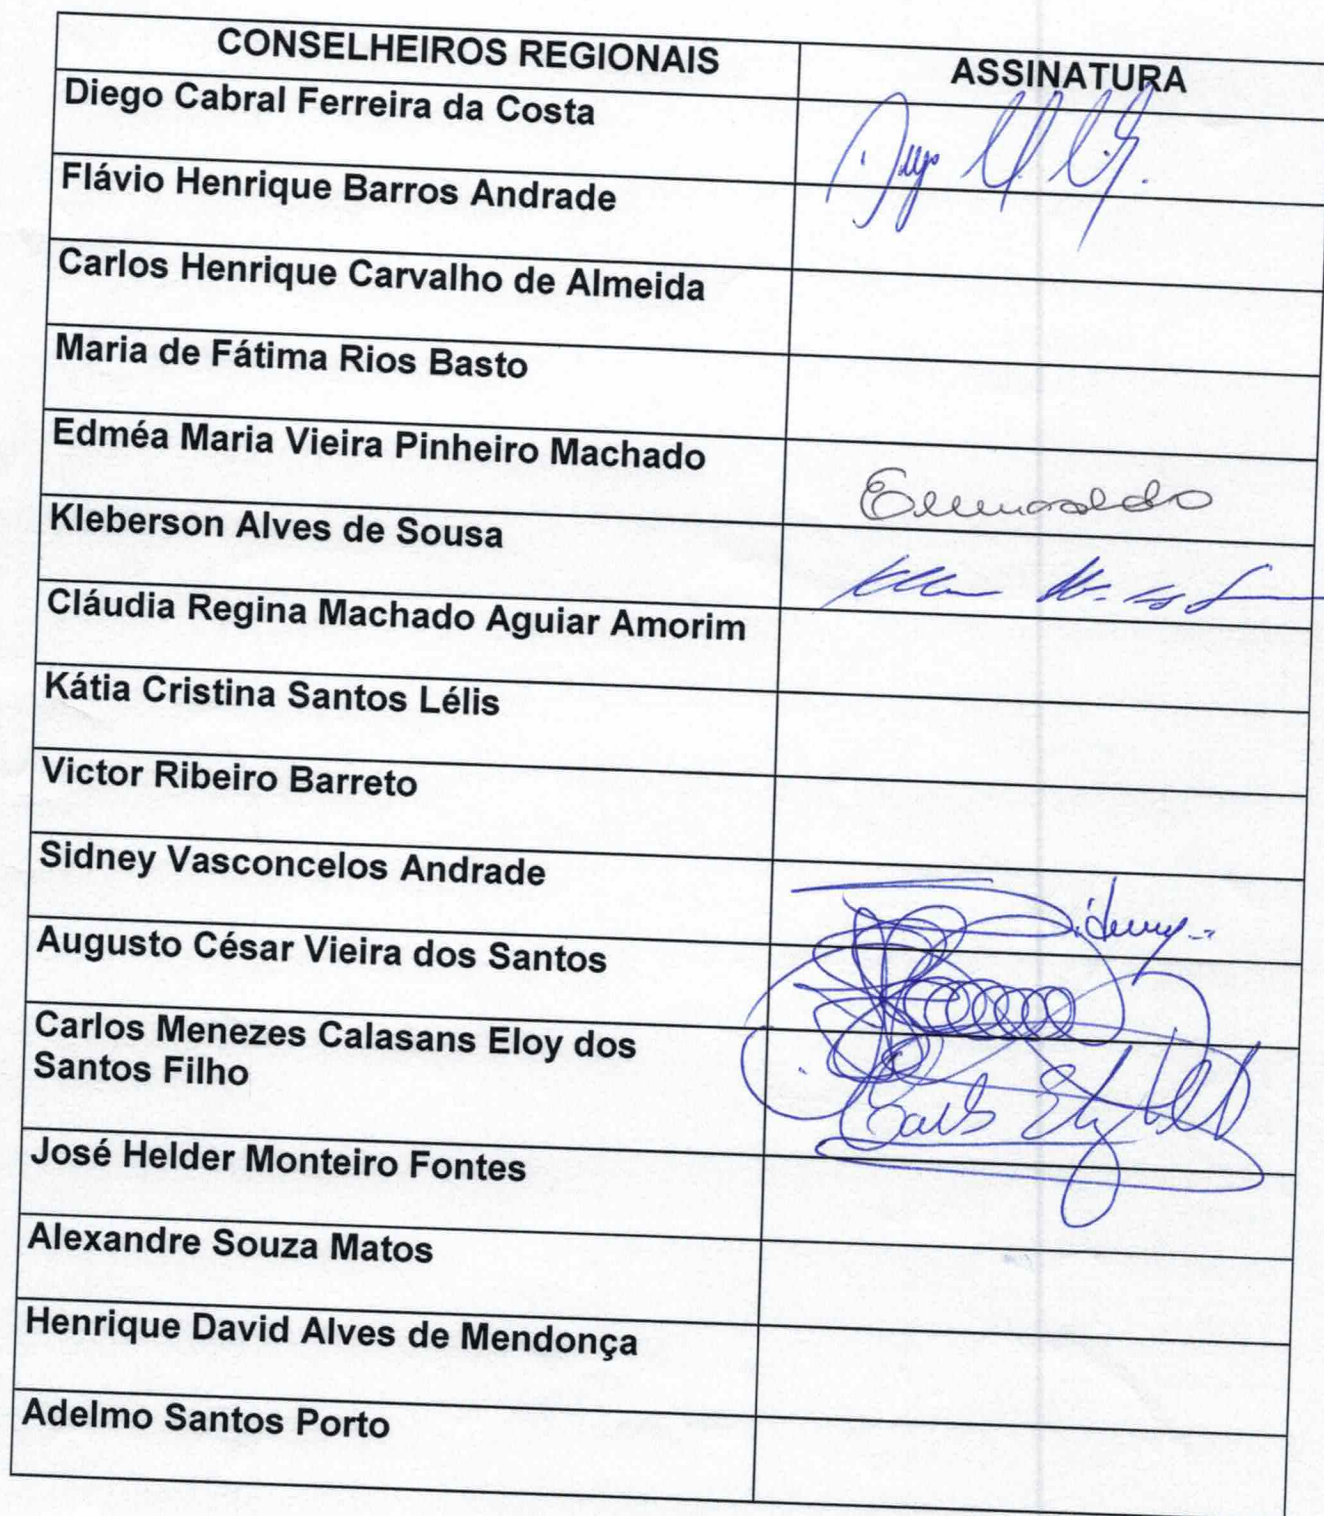 CONSELHEIROS REGIONAIS ASSINATURA
Diego Cabral Ferreira da Costa
Flávio Henrique Barros Andrade
Carlos Henrique Carvalho de Almeida
Maria de Fátima Rios Basto
Edméa Maria Vieira Pinheiro Machado
Kleberson Alves de Sousa
Cláudia Regina Machado Aguiar Amorim
Kátia Cristina Santos Lélis
Victor Ribeiro Barreto
Sidney Vasconcelos Andrade
Sidney
Augusto César Vieira dos Santos
Carlos Menezes Calasans Eloy dos
Santos Filho
José Helder Monteiro Fontes
Alexandre Souza Matos
Henrique David Alves de Mendonça
Adelmo Santos Porto